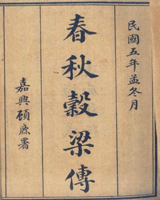 民國五年孟冬月
春秋穀梁傳
嘉興顧廉署